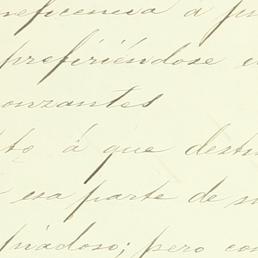 neficencia á
prefiriéndose
onzantes
to á que desti
esa parte de su
piadoso; pero con